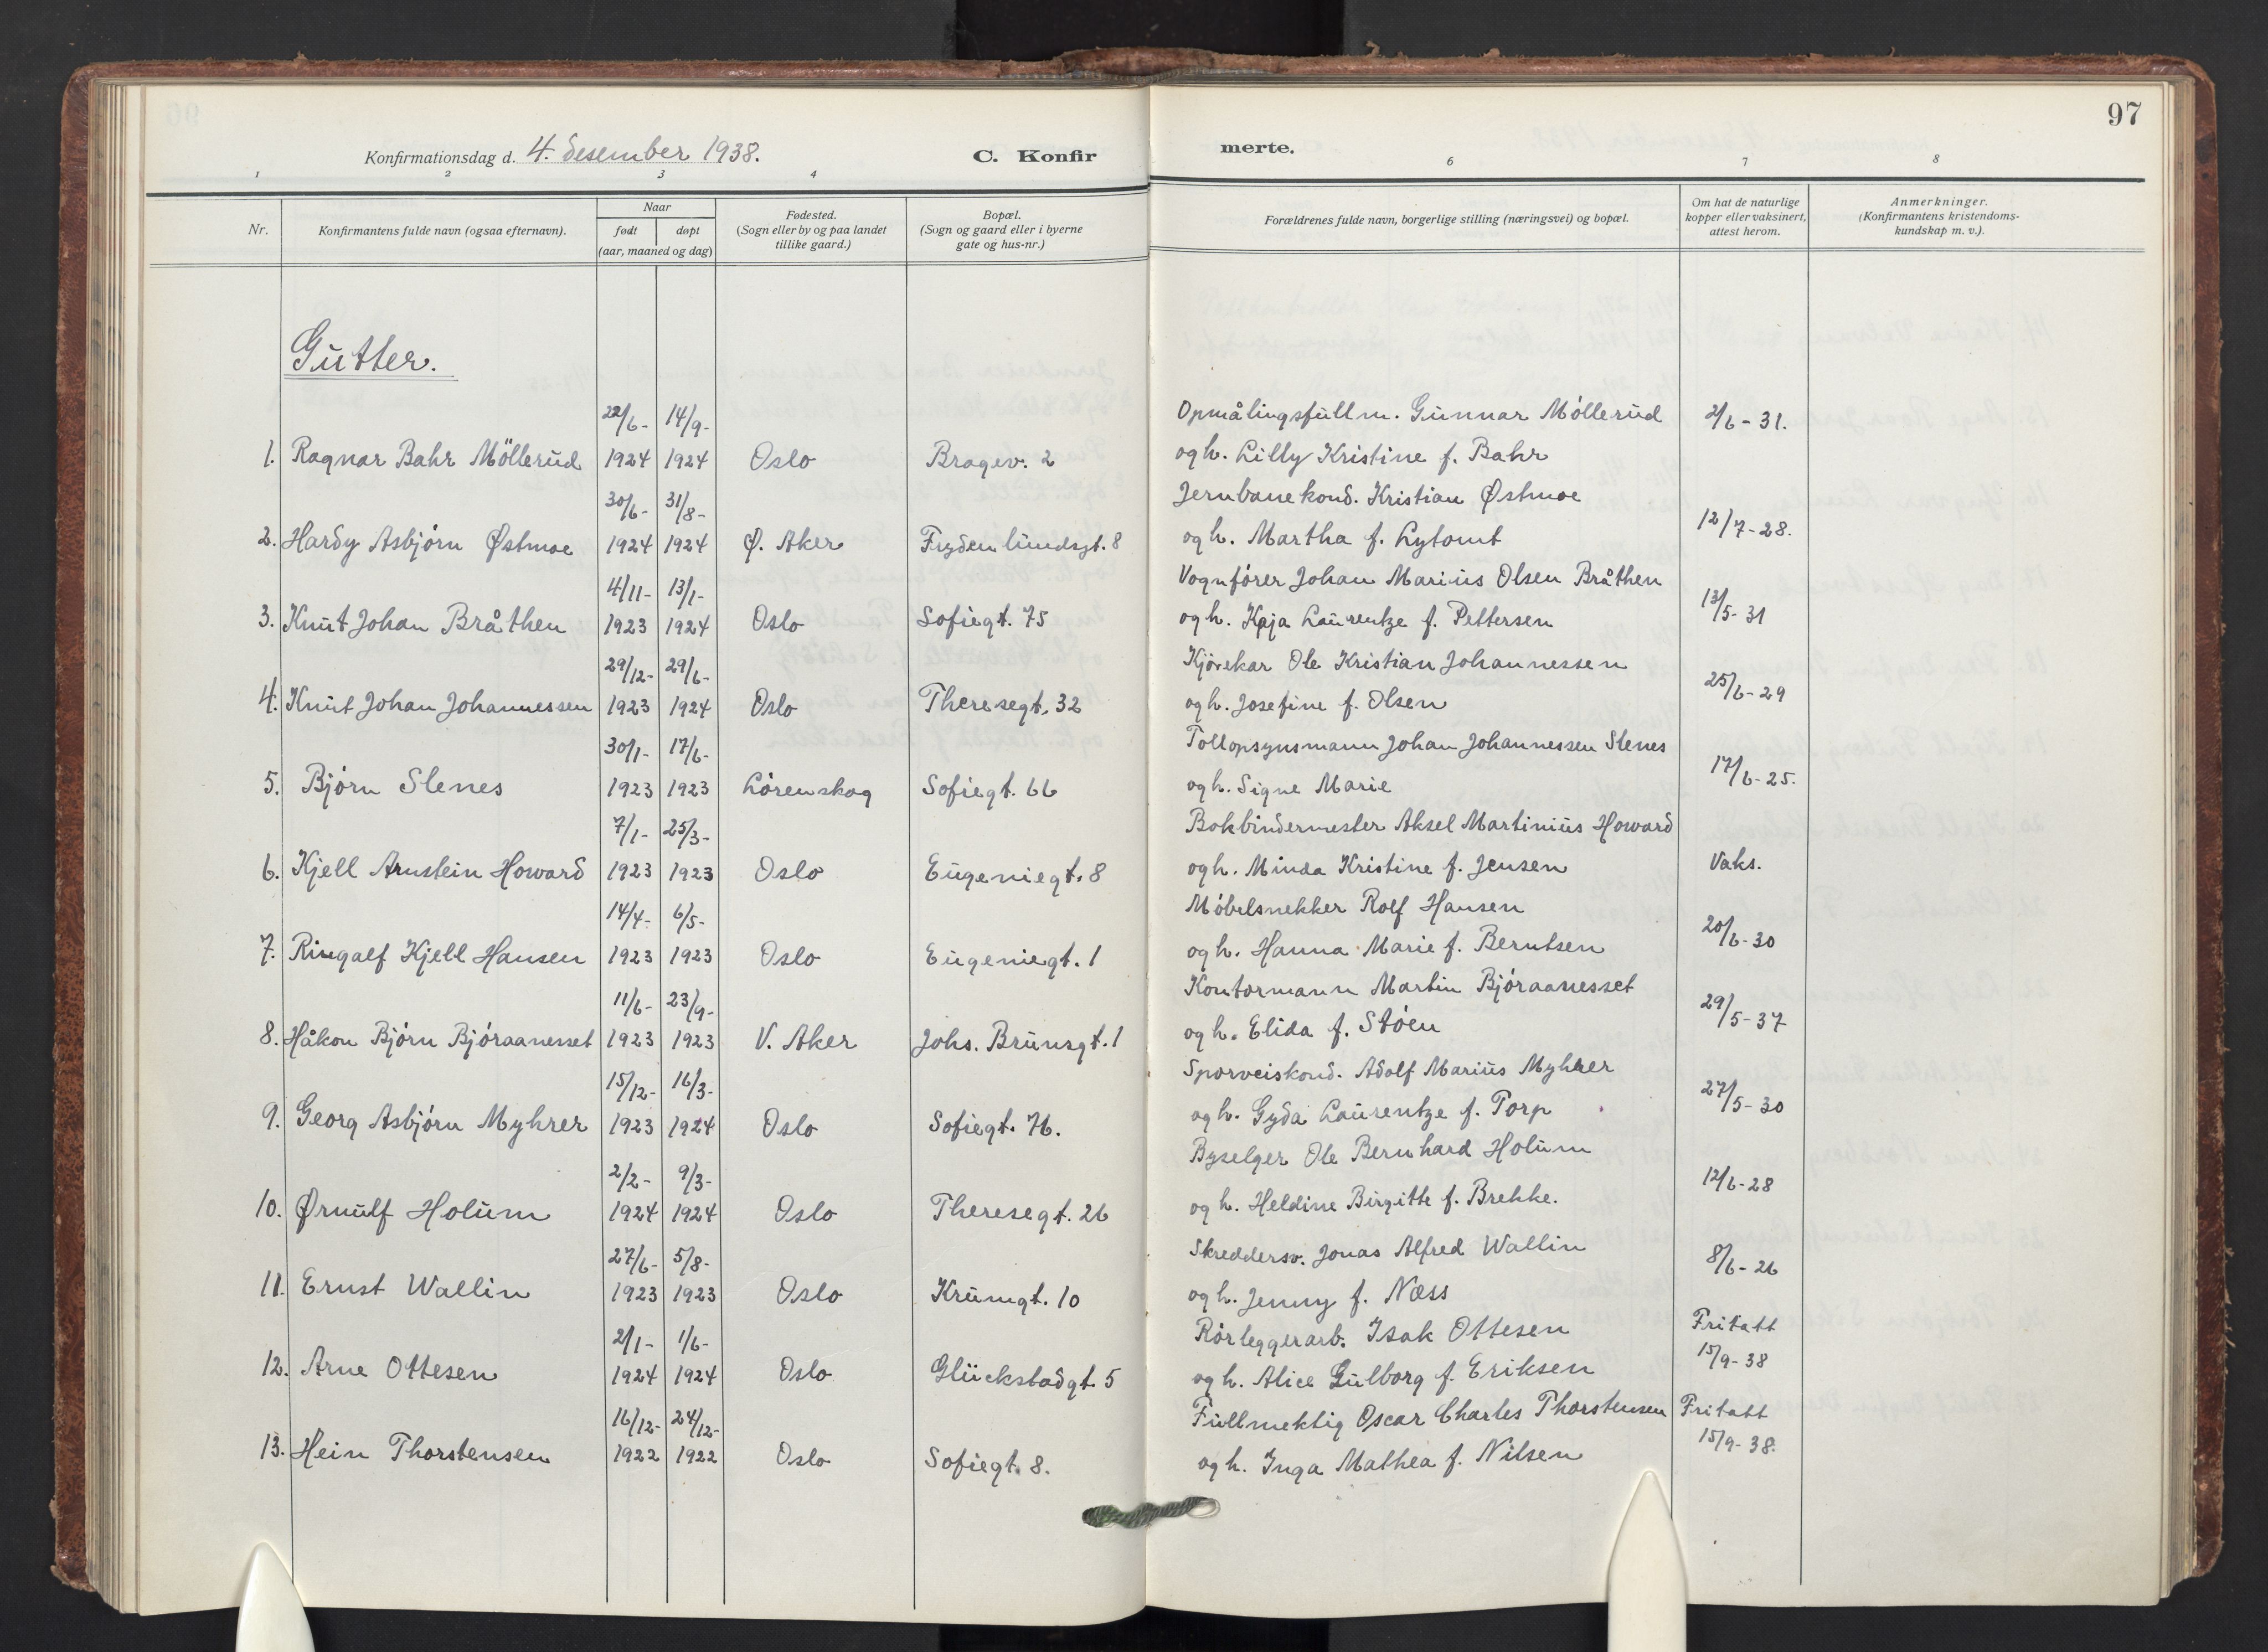 97
Konfirmationsdag d. 4. desember 1938.
C. Konfirmerte.
1 2 3 4 6 7 8
Nr.
Konfirmantens fulde navn (ogsaa efternavn).
Naar
født
døpt
(aar, maaned og dag)
Fødested.
(Sogn eller by og paa landet
tillike gaard.)
Bopæl.
(Sogn og gaard eller i byerne
gate og hus-nr.)
Forældrenes fulde navn, borgerlige stilling (næringsvei) og bopæl.
Om hat de naturlige
kopper eller vaksinert,
attest herom.
Anmerkninger.
(Konfirmantens kristendoms-
kundskap m. v.).
Gutter.
22/6- 14/9- Opmålingsfullm. Gunnar Möllerud 2/6-31.
1. Ragnar Bahr Möllerud 1924 1924 Oslo Bragev. 2 og h. Lilly Kristine f. Bahr
30/6- 31/8- Jernbanekond. Kristian Østmoe
2. Hardy Asbjörn Østmoe 1924 1924 Ø. Aker Frydenlundsgt. 8 og h. Martha f. Lytomt 12/7-28.
4/11- 13/1- Vognförer Johan Marius Olsen Bråthen
3. Knut Johan Bråthen 1923 1924 Oslo Sofiegt. 75 og h. Kaja Laurentze f. Pettersen 13/5-31
29/12- 29/6- Kjörekar Ole Kristian Johannessen
4. Knut Johan Johannessen 1923 1924 Oslo Theresegt. 32 og h. Josefine f. Olsen 25/6-29
30/1- 17/6- Tollopsynsmann Johan Johannessen Slenes
5. Björn Slenes 1923 1923 Lörenskog Sofiegt. 66 og h. Signe Marie 17/6-25.
7/1- 25/3- Bokbindermester Aksel Martinius Howard
6. Kjell Arnstein Howard 1923 1923 Oslo Eugeniegt. 8 og h. Minda Kristine f. Jensen Vaks.
14/4- 6/5- Möbelsnekker Rolf Hansen
7. Ringalf Kjell Hansen 1923 1923 Oslo Eugeniegt. 1 og h. Hanna Marie f. Berntsen 20/6-30
11/6- 23/9- Kontormann Martin Björaanesset
8. Håkon Björn Björaanesset 1923 1923 V. Aker Johs. Brunsgt. 1 og h. Elida f. Stöen 29/5-37
15/12- 16/3- Sporveiskond. Adolf Marius Myhrer
9. Georg Asbjörn Myhrer 1923 1924 Oslo Sofiegt. 76. og h. Gyda Laurentze f. Torp 27/5-30
2/2- 9/3- Byselger Ole Bernhard Holum
10. Ørnulf Holum 1924 1924 Oslo Theresegt. 26 og h. Heldine Birgitte f. Brekke. 12/6-28
27/6- 5/8- Skreddersv. Jonas Alfred Wallin
11. Ernst Wallin 1923 1923 Oslo Krumgt. 10 og h. Jenny f. Næss 8/6-26
2/1- 1/6- Rörleggerarb. Isak Ottesen Fritatt
12. Arne Ottesen 1924 1924 Oslo Glückstadgt. 5 og h. Alice Gulborg f. Eriksen 15/9-38
16/12- 24/12- Fullmektig Oscar Charles Thorstensen Fritatt
13. Hein Thorstensen 1922 1922 Oslo Sofiegt. 8. og h. Inga Mathea f. Nilsen 15/9-38.